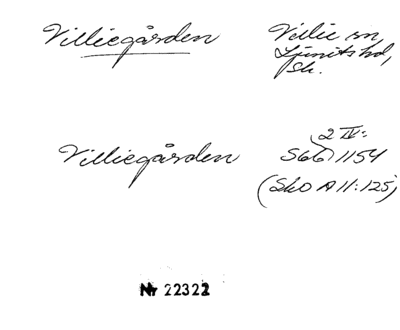 Villiegården
Villie sn,
Ljunits hd,
Sk.
2 IV:
Villiegården S66 1154
(SkO A II:125)
Nr 22322